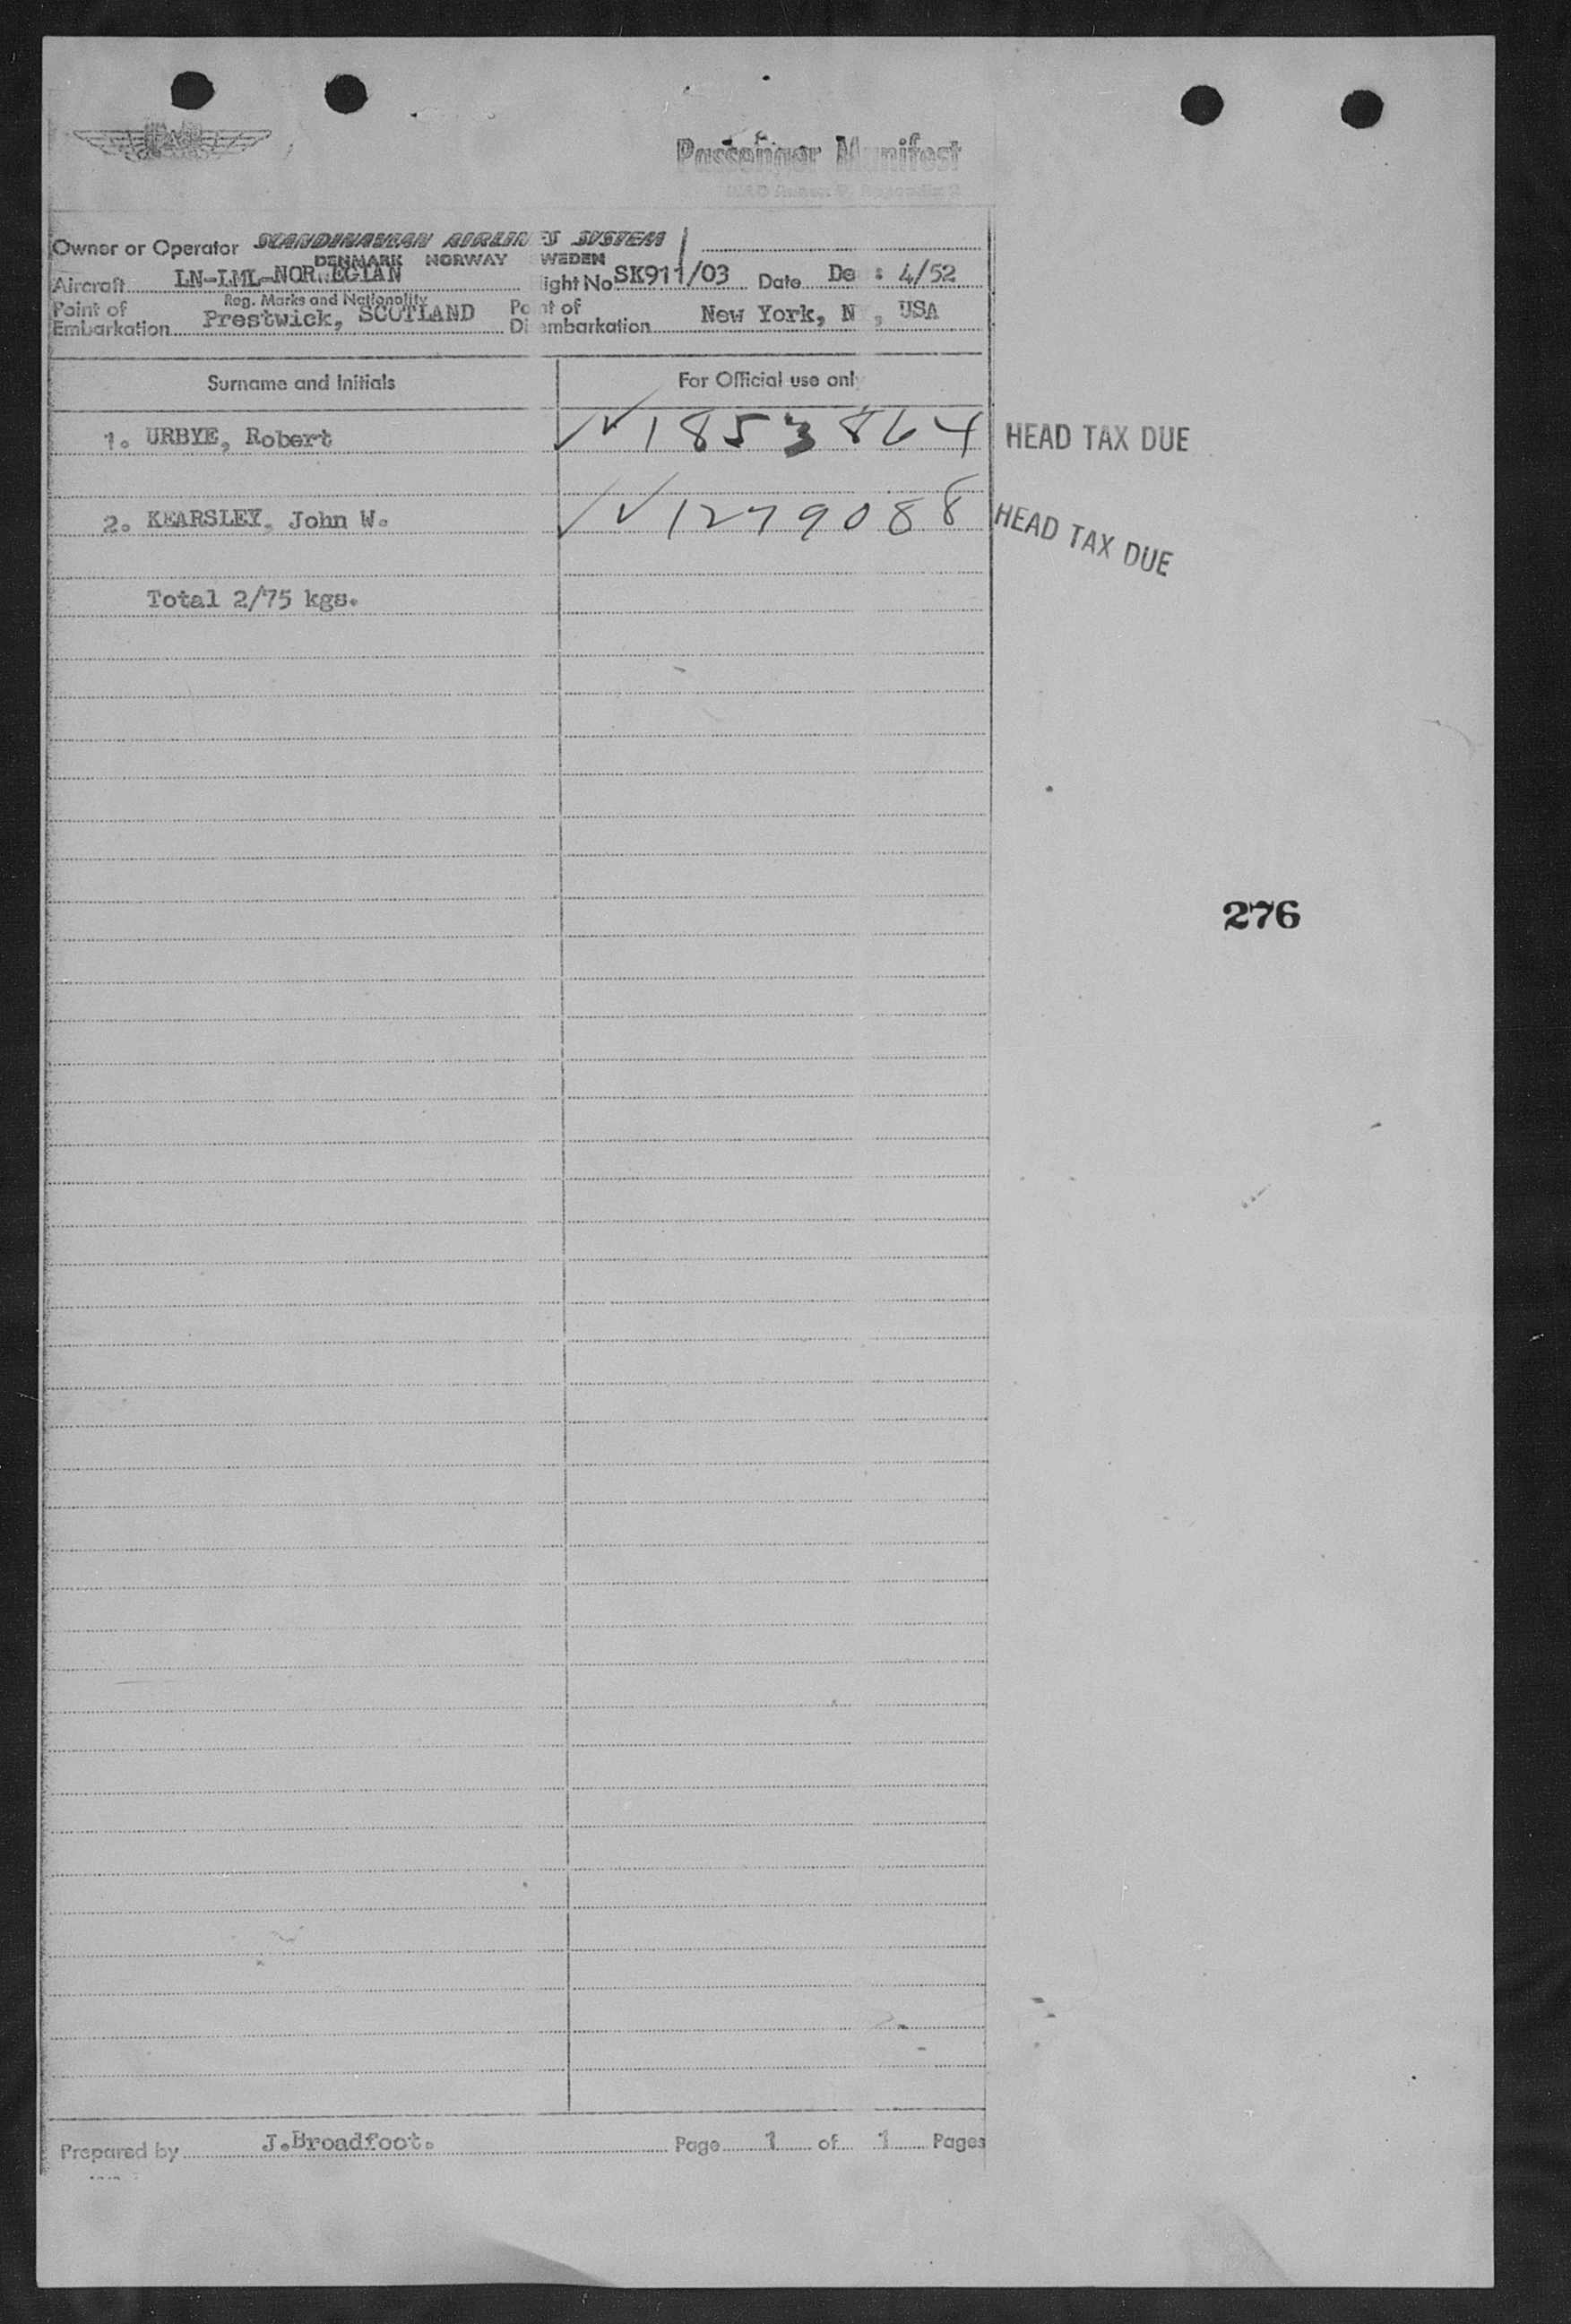 Passenger Manifest
Owner or Operator SCANDINAVIAN AIRLINES SYSTEM
DENMARK NORWAY WEDEN
Aircraft LN-LML-NORWEGIAN ight No SK911/03 Date De : 4/52
Reg. Marks and Nationality
Point of Embarkation Prestwick, SCOTLAND Po nt of Di embarkation New York, N , USA
Surname and Initials For Official use onl
1. URBYE, Robert 1853864 HEAD TAX DUE
2. KEARSLEY, John W. 1279088 HEAD TAX DUE
Total 2/75 kgs.
276
Prepared by J.Broadfoot. Page 1 of 1 Pages